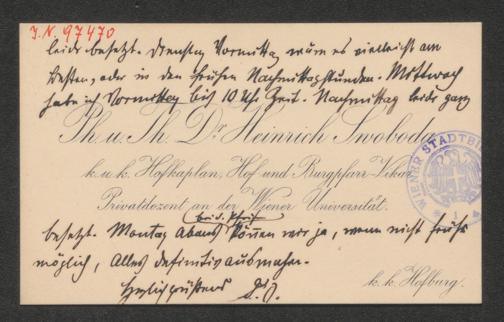 J.N. 97470
leider besetzt. Dienstag Vormittag wäre es vielleicht am
Besten, oder in den frühen Nachmittagsstunden. Mittwoch
habe ich Vormittag bis 10 Uhr Zeit. Nachmittag leider ganz
Ph. u. Th. Dr. Heinrich Swoboda
k. u. k. Hofkaplan, Hof- und Burgpfarr-Vikar
Privatdozent an der Wiener Universität.
WIENER STADTBI
1
besetzt. Montag Abends können wir ja, wenn nicht früher
möglich, Alles definitiv ausmachen.
Herzlich grüßend
k. k. Hofburg.